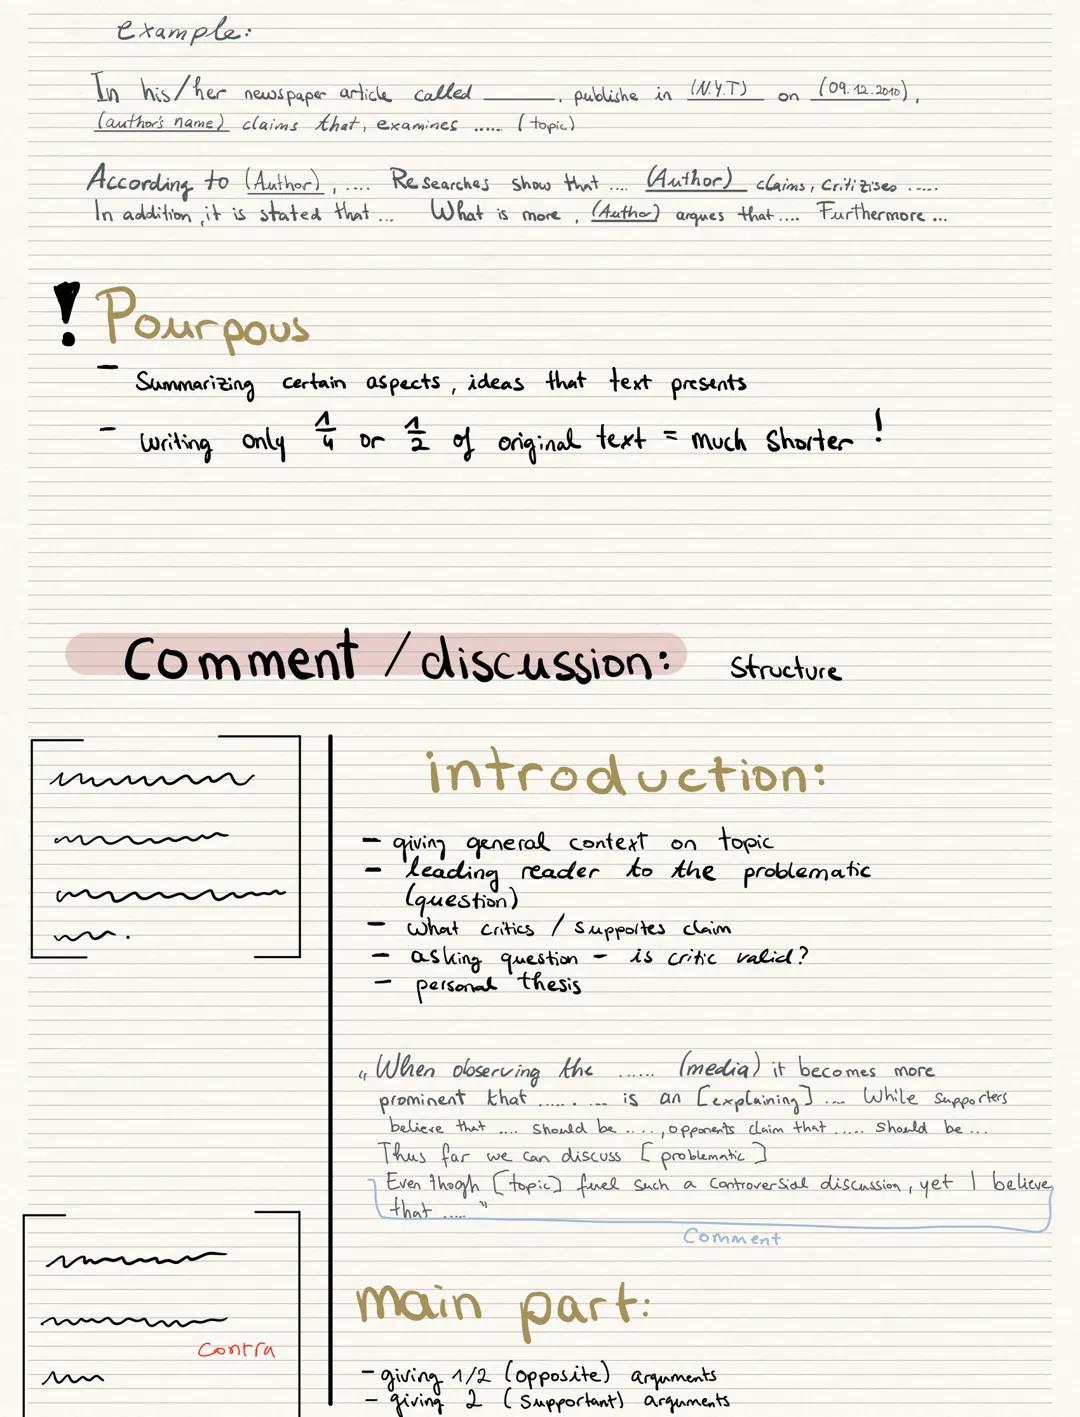 example:
In his/her newspaper article called ______, publishe in (N.Y.T) on (09.12.2010),
(author's name) claims that, examines ...... (topic)
According to (Author), .... Researches show that .... (Author) claims, critizises .....
In addition, it is stated that ... What is more, (Author) argues that .... Furthermore ...
! Pourpous
- Summarizing certain aspects, ideas that text presents
- writing only 1/4 or 1/2 of original text = much shorter !
Comment / discussion: Structure
introduction:
- giving general context on topic
- leading reader to the problematic
(question)
- what critics / supportes claim
- asking question - is critic valid?
- personal thesis
„When observing the ...... (media) it becomes more
prominent that ...... ... is an [explaining] .... While supporters
believe that .... should be ...., opponents claim that ..... should be ...
Thus far we can discuss [problematic]
Even thogh [topic] fuel such a controversial discussion, yet I believe
that ....."
Comment
main part:
contra
- giving 1/2 (opposite) arguments
- giving 2 (supportant) arguments